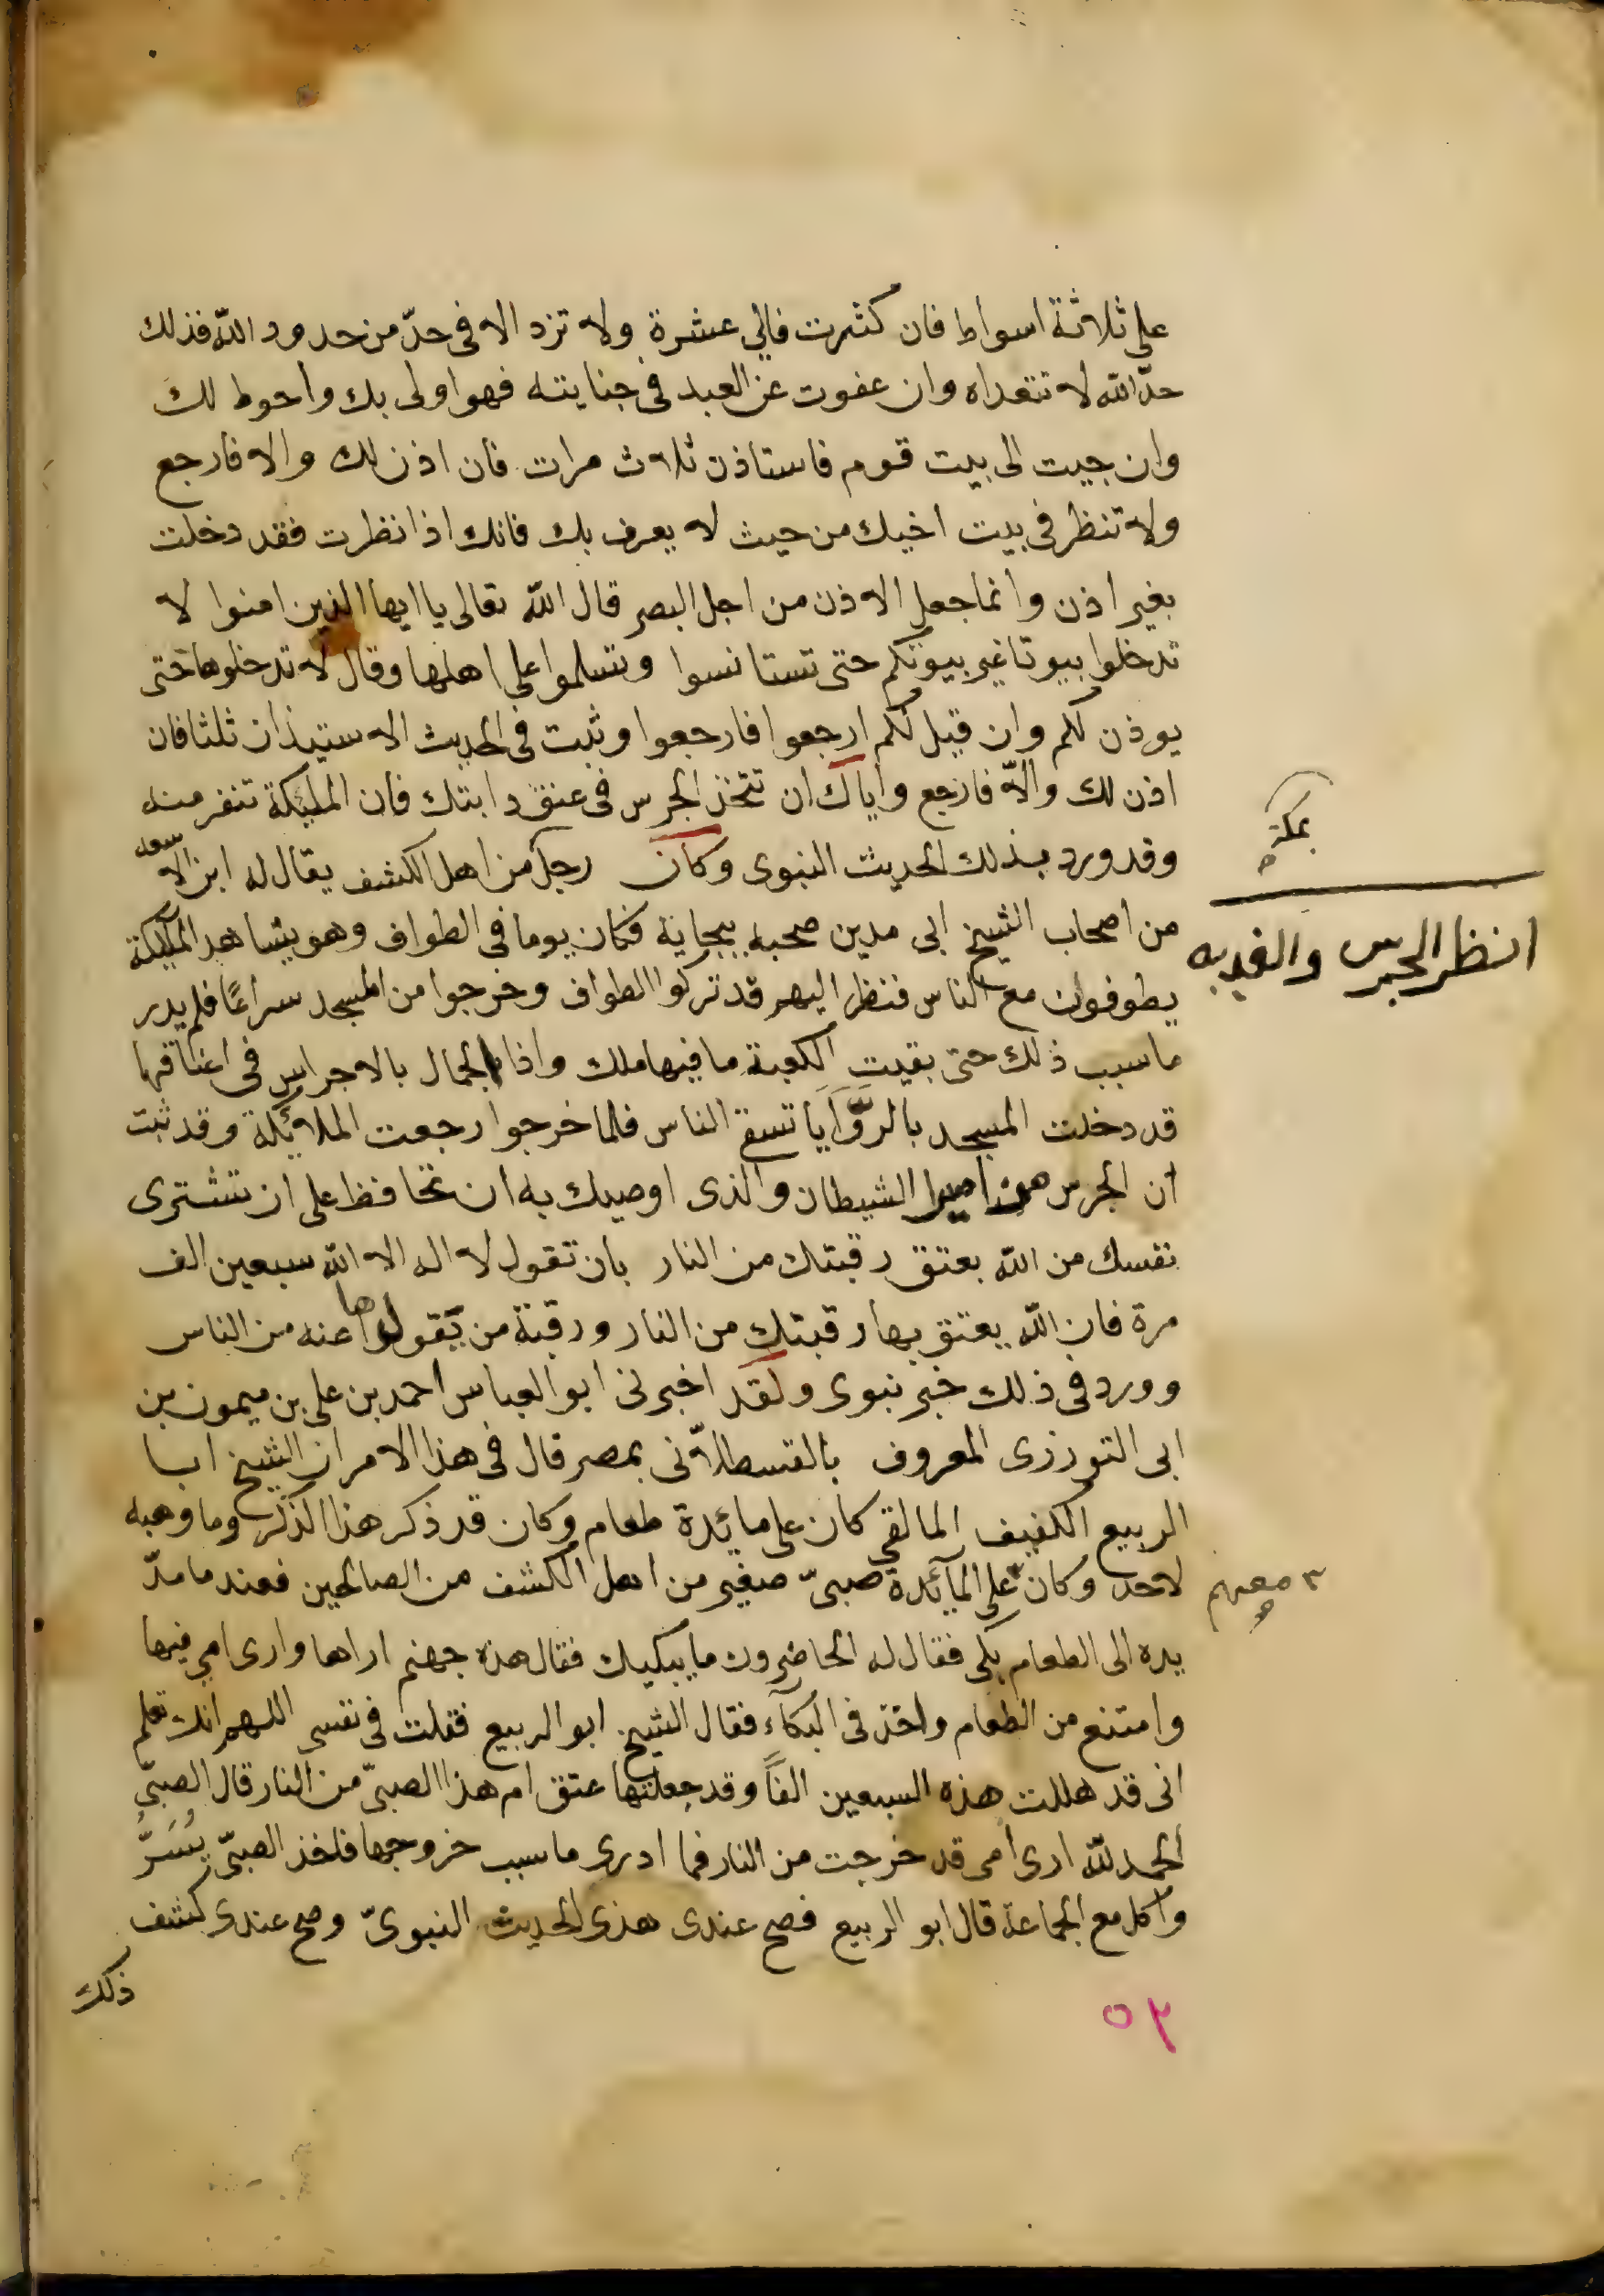 على ثلاثة اسواط فان كثرت فالى عشرة ولا تزد الا فى حدّ من حدود اللّه فذلك
حدّ اللّه لا تتعداه وان عفوت عن العبد فى جنايته فهو اولى بك واحوط لك
وان جيت الى بيت قوم فاستاذن ثلاث مرات فان اذن لك والا فارجع
ولا تنظر فى بيت اخيك من حيث لا يعرف بك فانك اذا نظرت فقد دخلت
بغير اذن وانما جعل الاذن من اجل البصر قال اللّه تعالى يا ايها الذين امنوا لا
تدخلوا بيوتا غير بيوتكم حتى تستانسوا وتسلموا على اهلها وقال لا تدخلوها حتى
يوذن لكم وان قيل لكم ارجعوا فارجعوا وثبت فى الحديث الاستيذان ثلثا فان
اذن لك والّا فارجع واياك ان تتخذ الجرس فى عنق دابتك فان المليكة تنفر منه
بمكة
وقد ورد بذلك الحديث النبوى وكان رجل من اهل الكشف يقال له ابن الاسعد
انظر الجرس والغديه
من اصحاب الشيخ ابى مدين صحبه ببجاية فكان يوما فى الطواف وهو يشاهد المليكة
يطوفون مع الناس فنظر اليهم قد تركوا الطواف وخرجوا من المسجد سراعًا فلم يدر
ما سبب ذلك حتى بقيت الكعبة ما فيها ملك واذا بالجمال بالاجراس فى اعناقها
قد دخلت المسجد بالرَّوَايا تسق الناس فلما خرجوا رجعت الملائكة وقد ثبت
ان الجرس مزامير الشيطان والذى اوصيك به ان تحافظ على ان تشترى
نفسك من اللّه بعتق رقبتك من النار بان تقول لا اله الا اللّه سبعين الف
مرة فان اللّه يعتق بها رقبتك من النار ورقبة من تقولها عنه من الناس
وورد فى ذلك خبر نبوى ولقد اخبرنى ابو العباس احمد بن على بن ميمون بن
ابى التوزرى المعروف بالقسطلّانى بمصر قال فى هذا الامر ان الشيخ ابا
الربيع الكفيف المالقى كان على مائدة طعام وكان قد ذكر هذا الذكر وما وهبه
لاحد وكان على المآئدة صبىّ صغير من اهل الكشف من الصالحين فعند ما مدّ
معهم
يده الى الطعام بكى فقال له الحاضرون ما يبكيك فقال هذه جهنم اراها وارى امى فيها
وامتنع من الطعام واخذ فى البكآء فقال الشيخ ابو الربيع فقلت فى نفسى اللهم انك تعلم
انى قد هللت هذه السبعين الفاً وقد جعلتها عتق ام هذا الصبىّ من النار قال الصبىّ
الحمد للّه ارى امى قد خرجت من النار فما ادرى ما سبب خروجها فاخذ الصبىّ يُسَرُّ
واكل مع الجماعة قال ابو الربيع فصح عندى هذى الحديث النبوىّ وصح عندى كشف
ذلك
٥٢